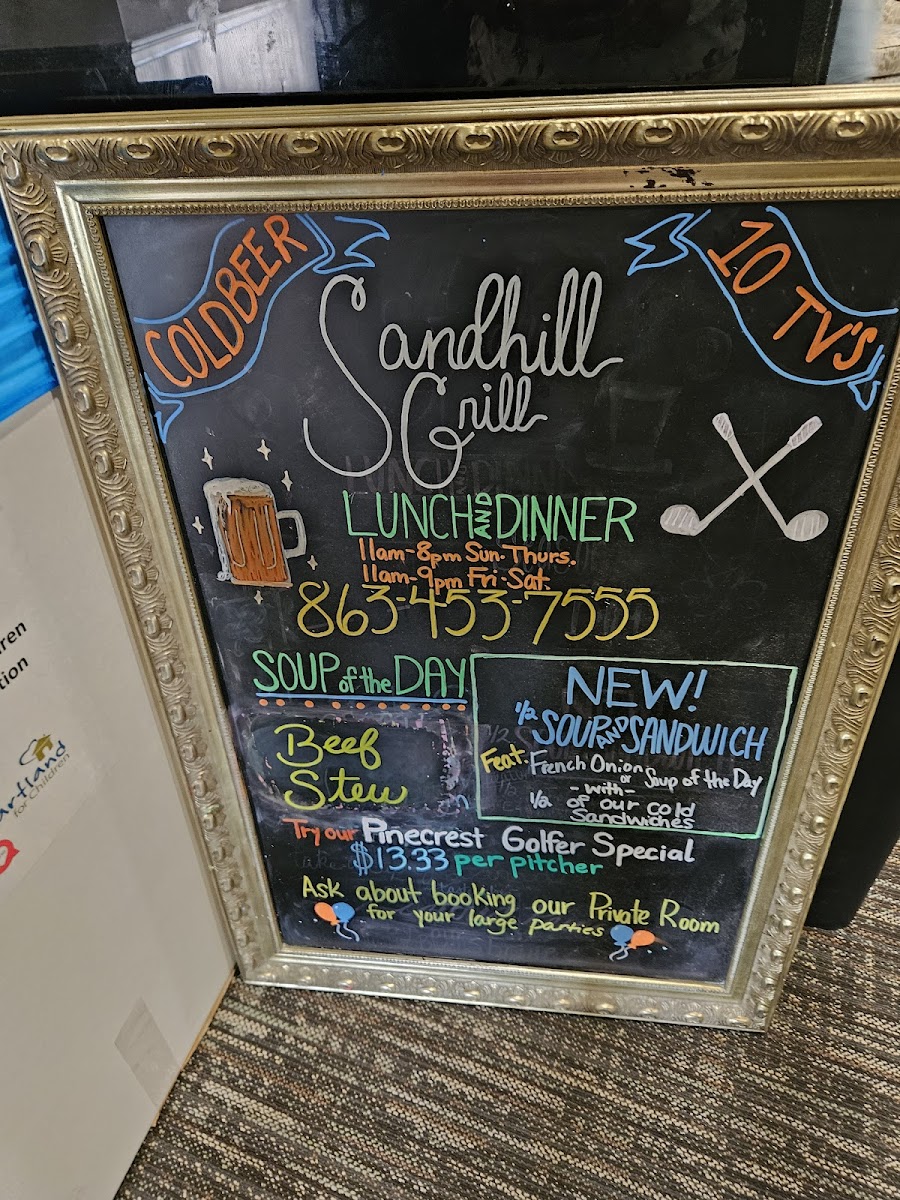 COLD BEER
10 TV'S
Sandhill
Grill
LUNCH AND DINNER
11am-8pm Sun-Thurs.
11am-9pm Fri-Sat.
863-453-7555
SOUP of the DAY
Beef
Stew
NEW!
1/2 SOUP AND SANDWICH
Feat. French Onion or Soup of the Day
- with -
1/2 of our cold
Sandwiches
Try our Pinecrest Golfer Special
$13.33 per pitcher
Ask about booking our Private Room
for your large parties
ren
tion
artland
for Children